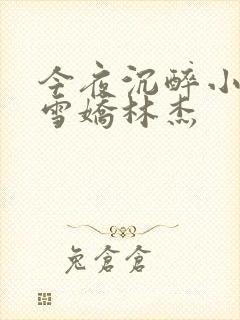 今夜沉醉小
雪嬌林杰
兔倉倉